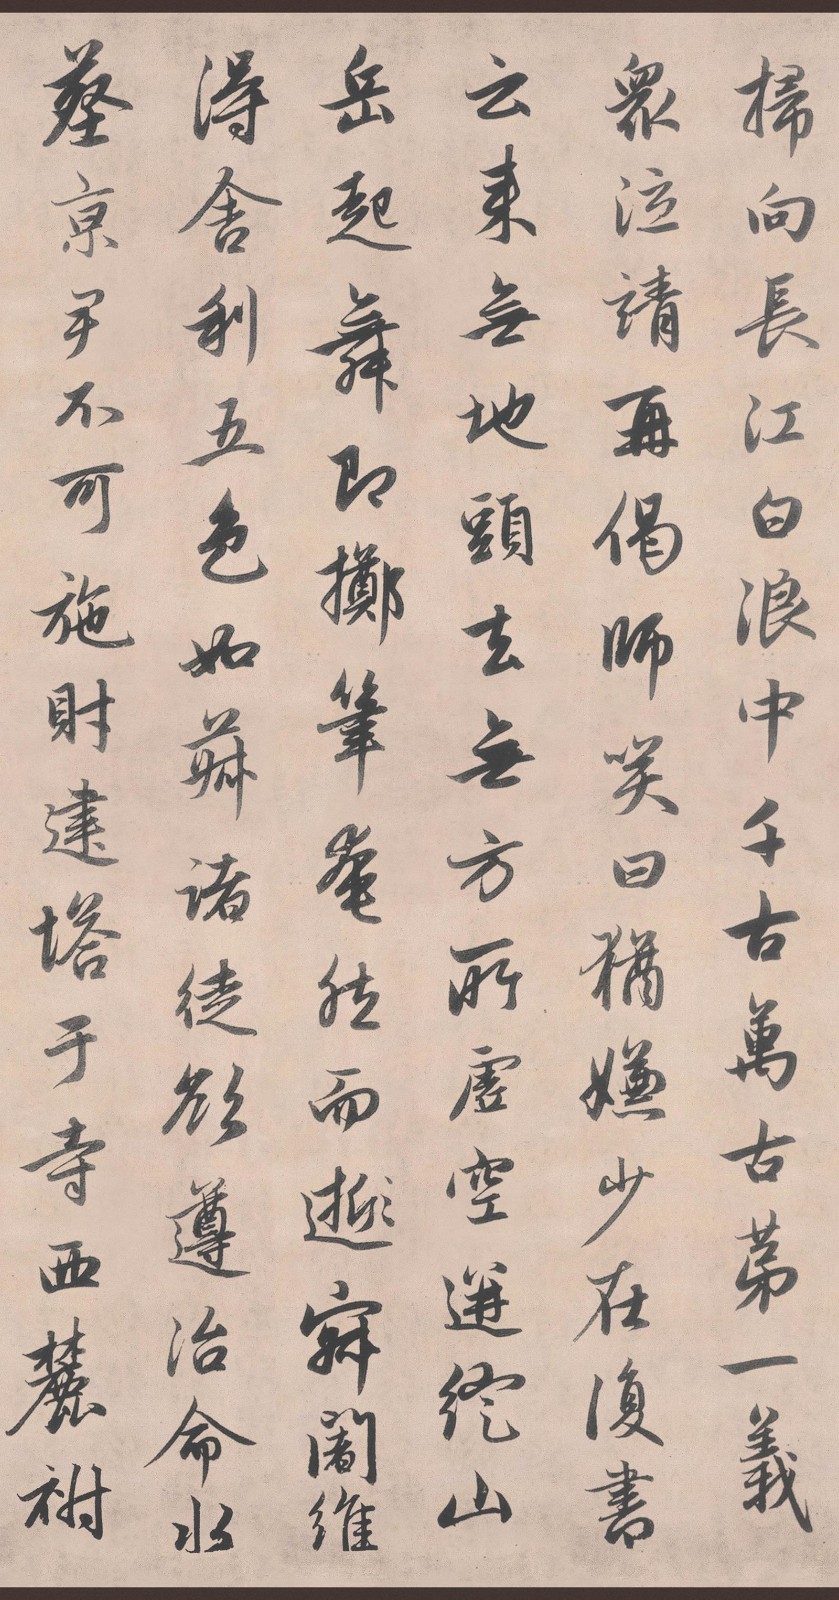 掃向長江白浪中千古萬古第一義
眾泣請再偈師笑曰猶嫌少在復書
云來無地頭去無方所虛空迸綻山
岳起舞即擲筆奄然而逝齋闍維
得舍利五色如菽諸徒欲遵治命水
葬京尹不可施財建塔于寺西麓祔